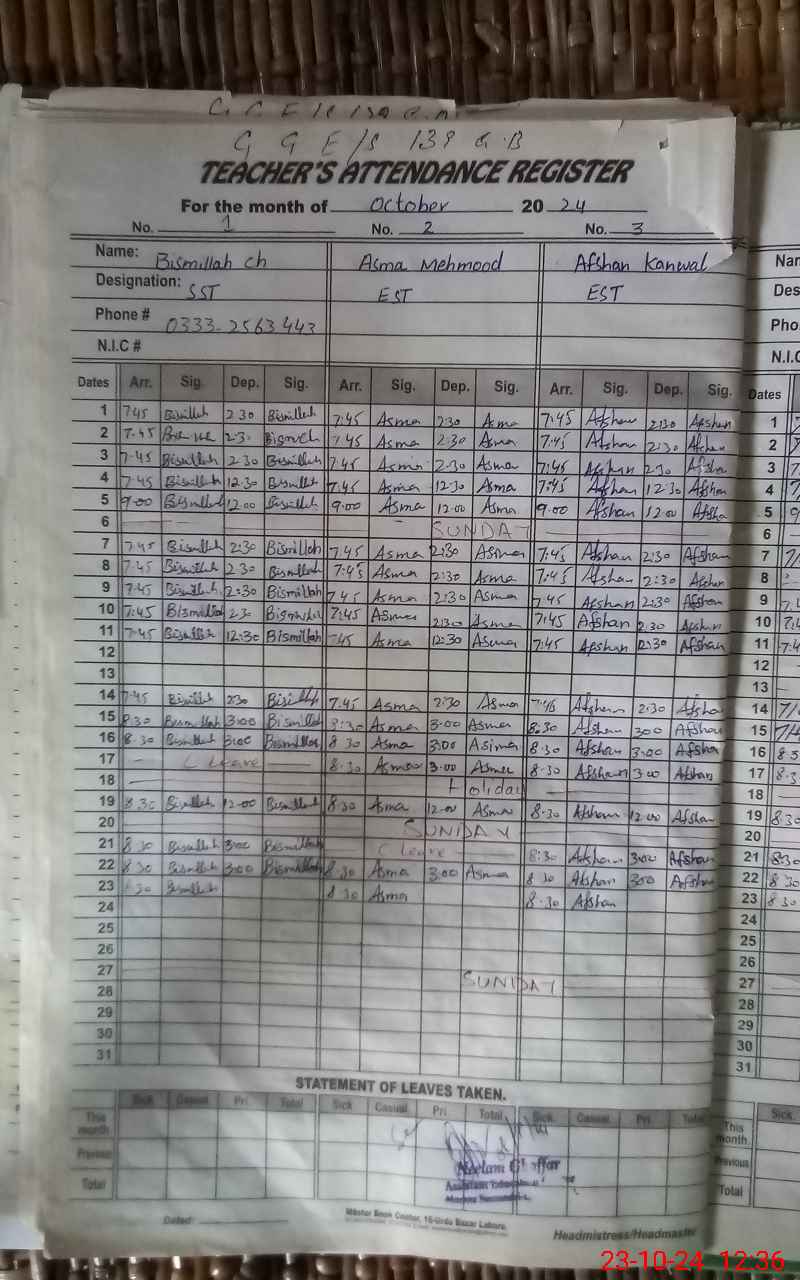 G G E/S 139 G.B
TEACHER'S ATTENDANCE REGISTER
For the month of October 2024
No. 1 No. 2 No. 3
Name: Bismillah ch Asma Mehmood Afshan Kanwal
Designation: SST EST EST
Phone # 0333-2563443
N.I.C #
Dates Arr. Sig. Dep. Sig. Arr. Sig. Dep. Sig. Arr. Sig. Dep. Sig. Dates
1 7:45 Bismillah 2:30 Bismillah 7:45 Asma 2:30 Asma 7:45 Afshan 2:30 Afshan 1
2 7.45 2.30 7.45 Asma 2.30 Asma 7:45 Afshan 2:30 Afshan 2
3 7.45 Bismillah 2.30 Bismillah 7:45 Asma 2.30 Asma 7:45 Afshan 2.30 Afshan 3
4 7.45 Bismillah 12.30 Bismillah 7:45 Asma 12.30 Asma 7:45 Afshan 12.30 Afshan 4
5 9.00 Bismillah 12.00 Bismillah 9.00 Asma 12.00 Asma 9.00 Afshan 12.00 Afsha 5
6 SUNDAY 6
7 7.45 Bismillah 2:30 Bismillah 7.45 Asma 2:30 Asma 7:45 Afshan 2:30 Afshan 7
8 7.45 Bismillah 2.30 Bismillah 7:45 Asma 2:30 Asma 7:45 Afshan 2:30 Afshan 8
9 7.45 Bismillah 2:30 Bismillah 7.45 Asma 2:30 Asma 7.45 Afshan 2:30 Afshan 9
10 7:45 Bismillah 2.30 7:45 Asma 2:30 Asma 7:45 Afshan 2.30 Afshan 10
11 7.45 Bismillah 12:30 Bismillah 7.45 Asma 12:30 Asma 7:45 Afshan 12:30 Afshan 11
12 12
13 13
14 7.45 Bismillah 2.30 7.45 Asma 2.30 Asma 7.45 Afshan 2:30 Afsha 14
15 8.30 Bismillah 3:00 Bismillah 8:30 Asma 3.00 Asma 8:30 Afshan 3.00 Afshan 15
16 8.30 Bismillah 3:00 Bismillah 8.30 Asma 3:00 Asma 8.30 Afshan 3.00 Afshan 16
17 C leave 8.30 Asma 3.00 Asma 8.30 Afshan 3.00 Afshan 17
18 Holiday 18
19 8.30 Bismillah 12.00 Bismillah 8.30 Asma 12.00 Asma 8.30 Afshan 12.00 Afshan 19
20 SUNDAY 20
21 8.30 Bismillah 3:00 Bismillah C leave 8:30 Afshan 3:00 Afshan 21
22 8.30 Bismillah 3:00 Bismillah 8.30 Asma 3.00 Asma 8.30 Afshan 3.00 Afshan 22
23 8.30 Bismillah 8.30 Asma 8.30 Afshan 23
24 24
25 25
26 26
27 SUNDAY 27
28 28
29 29
30 30
31 31
STATEMENT OF LEAVES TAKEN.
Sick Casual Pri Total Sick Casual Pri Total Sick Casual Pri Total Sick
This month This month.
Previous Previous
Total Total
Dated:
Master Book Center, 16-Urdu Bazar Lahore.
Headmistress/Headmaster
23-10-24 12:36